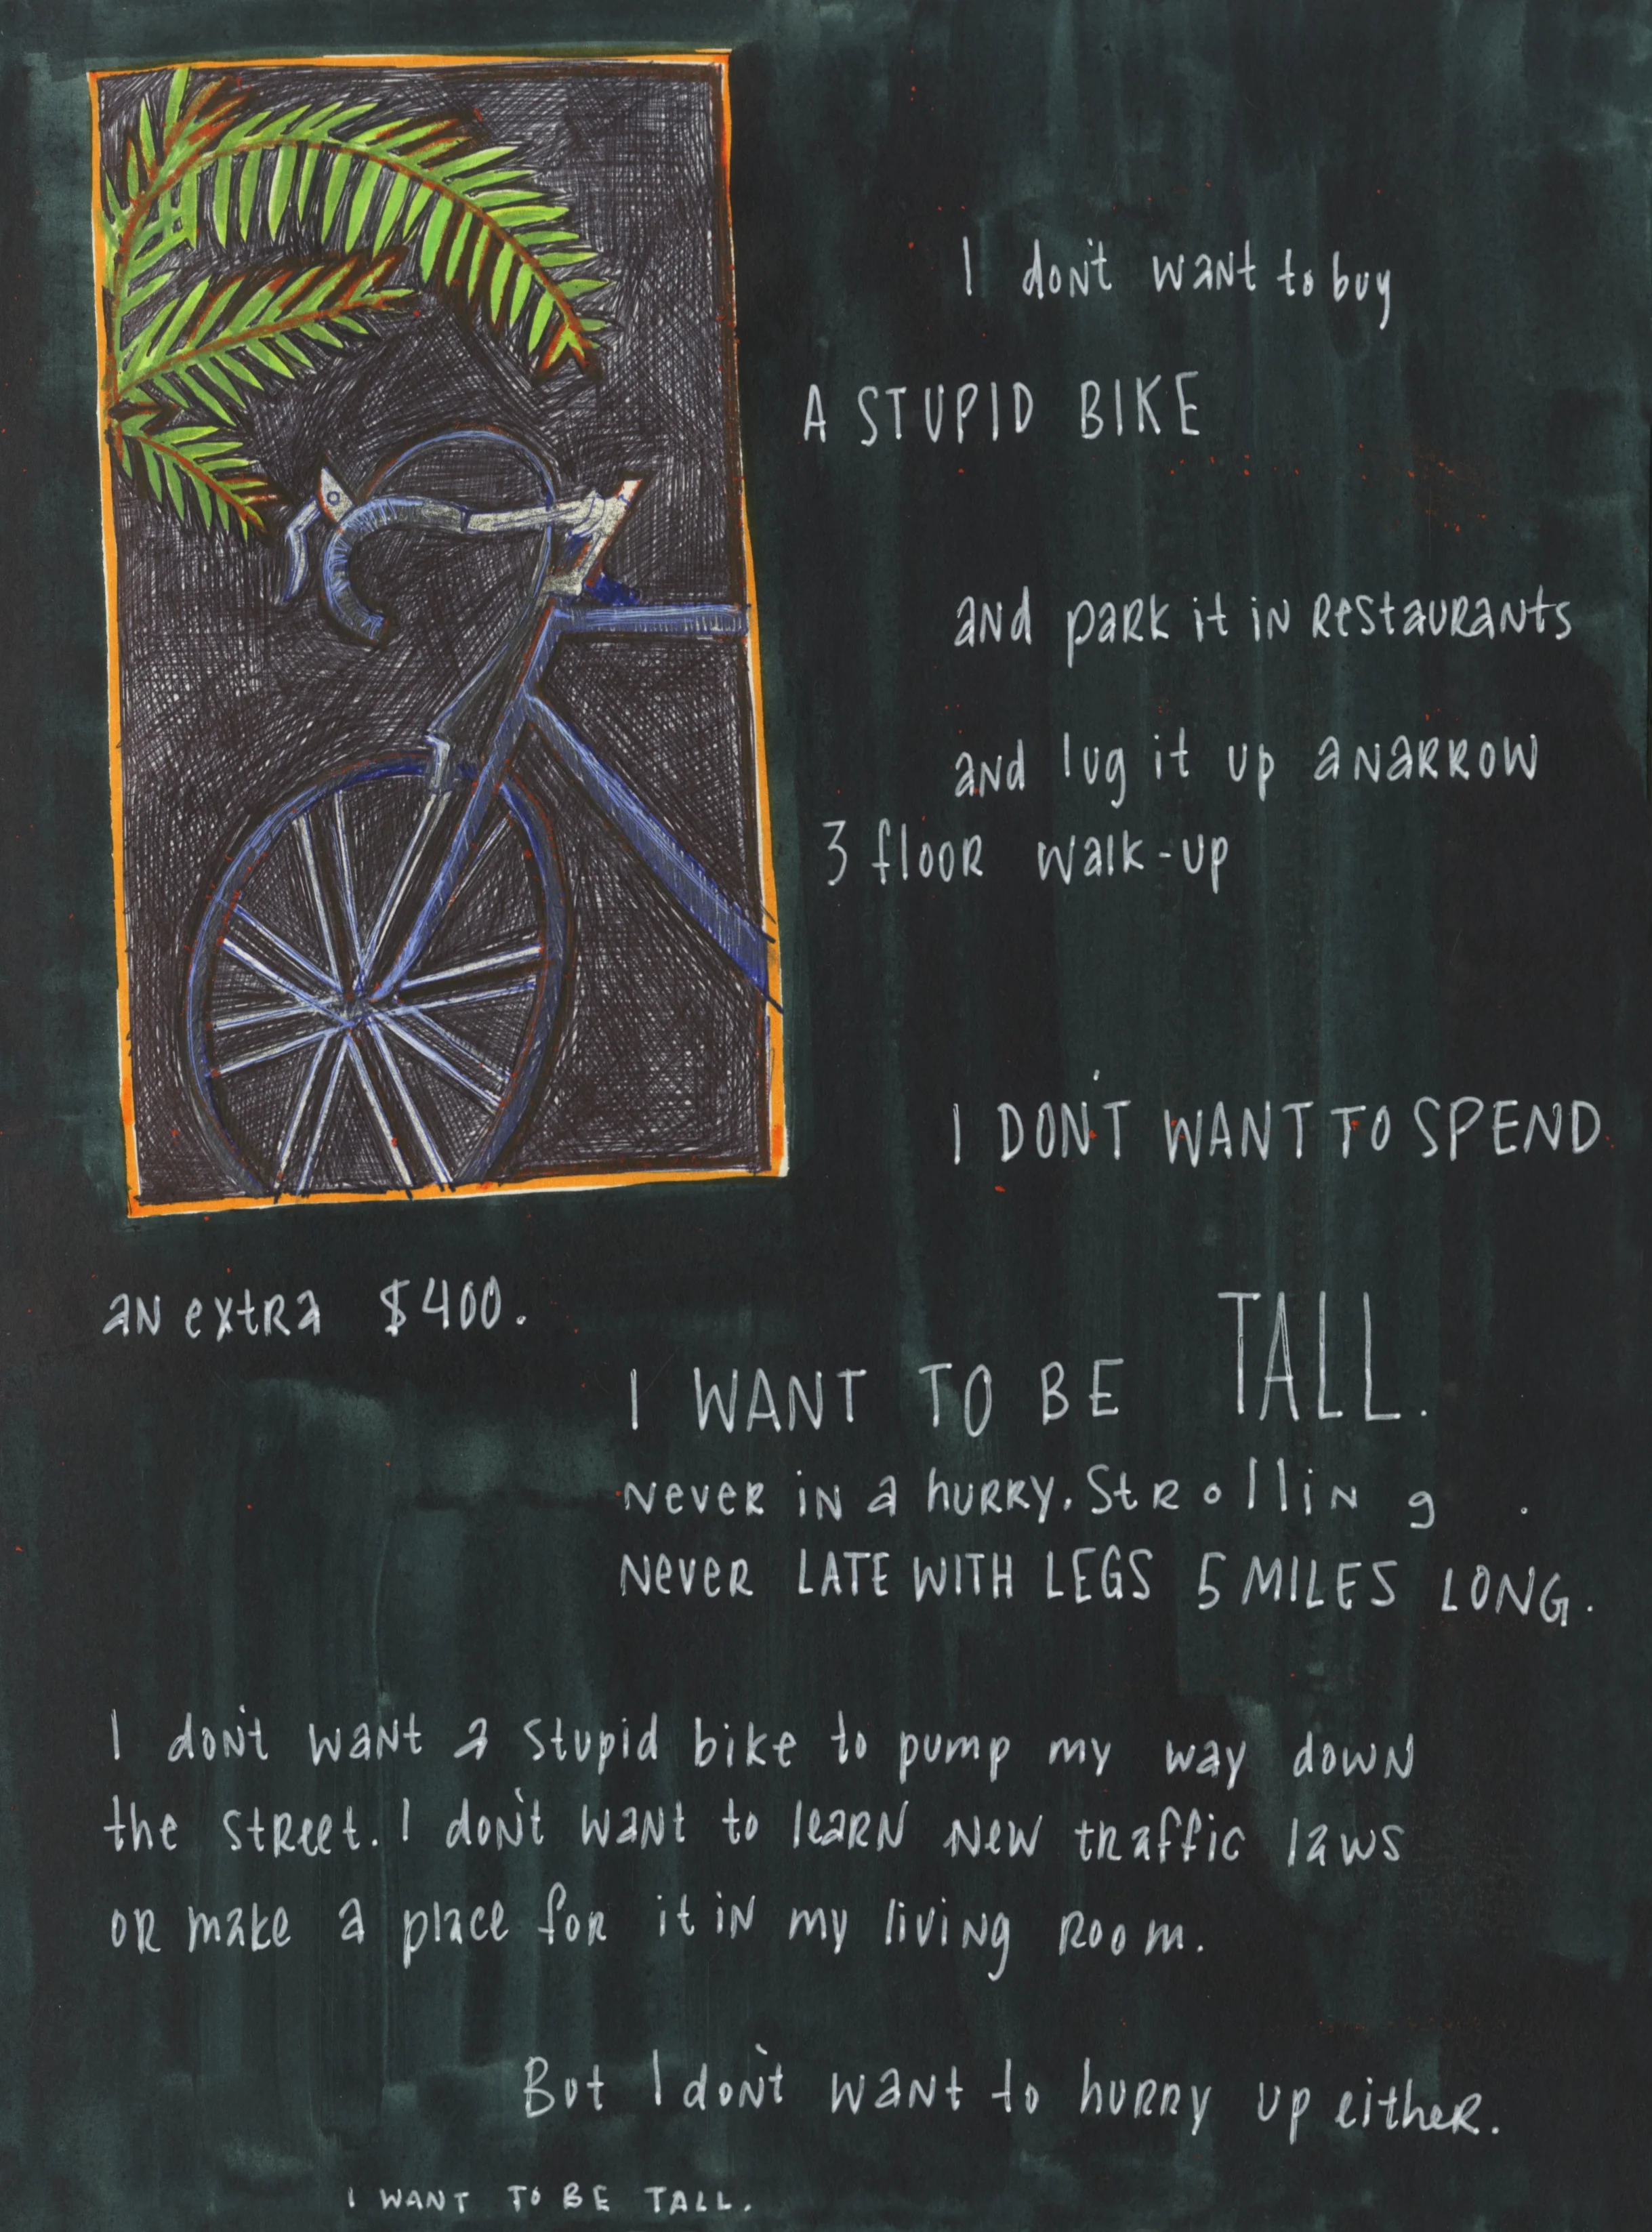 I don't want to buy
A STUPID BIKE
and park it in restaurants
and lug it up a narrow
3 floor walk-up
I DON'T WANT TO SPEND
an extra $400.
I WANT TO BE TALL.
never in a hurry. strolling.
never LATE WITH LEGS 5 MILES LONG.
I don't want a stupid bike to pump my way down
the street. I don't want to learn new traffic laws
or make a place for it in my living room.
But I don't want to hurry up either.
I WANT TO BE TALL.